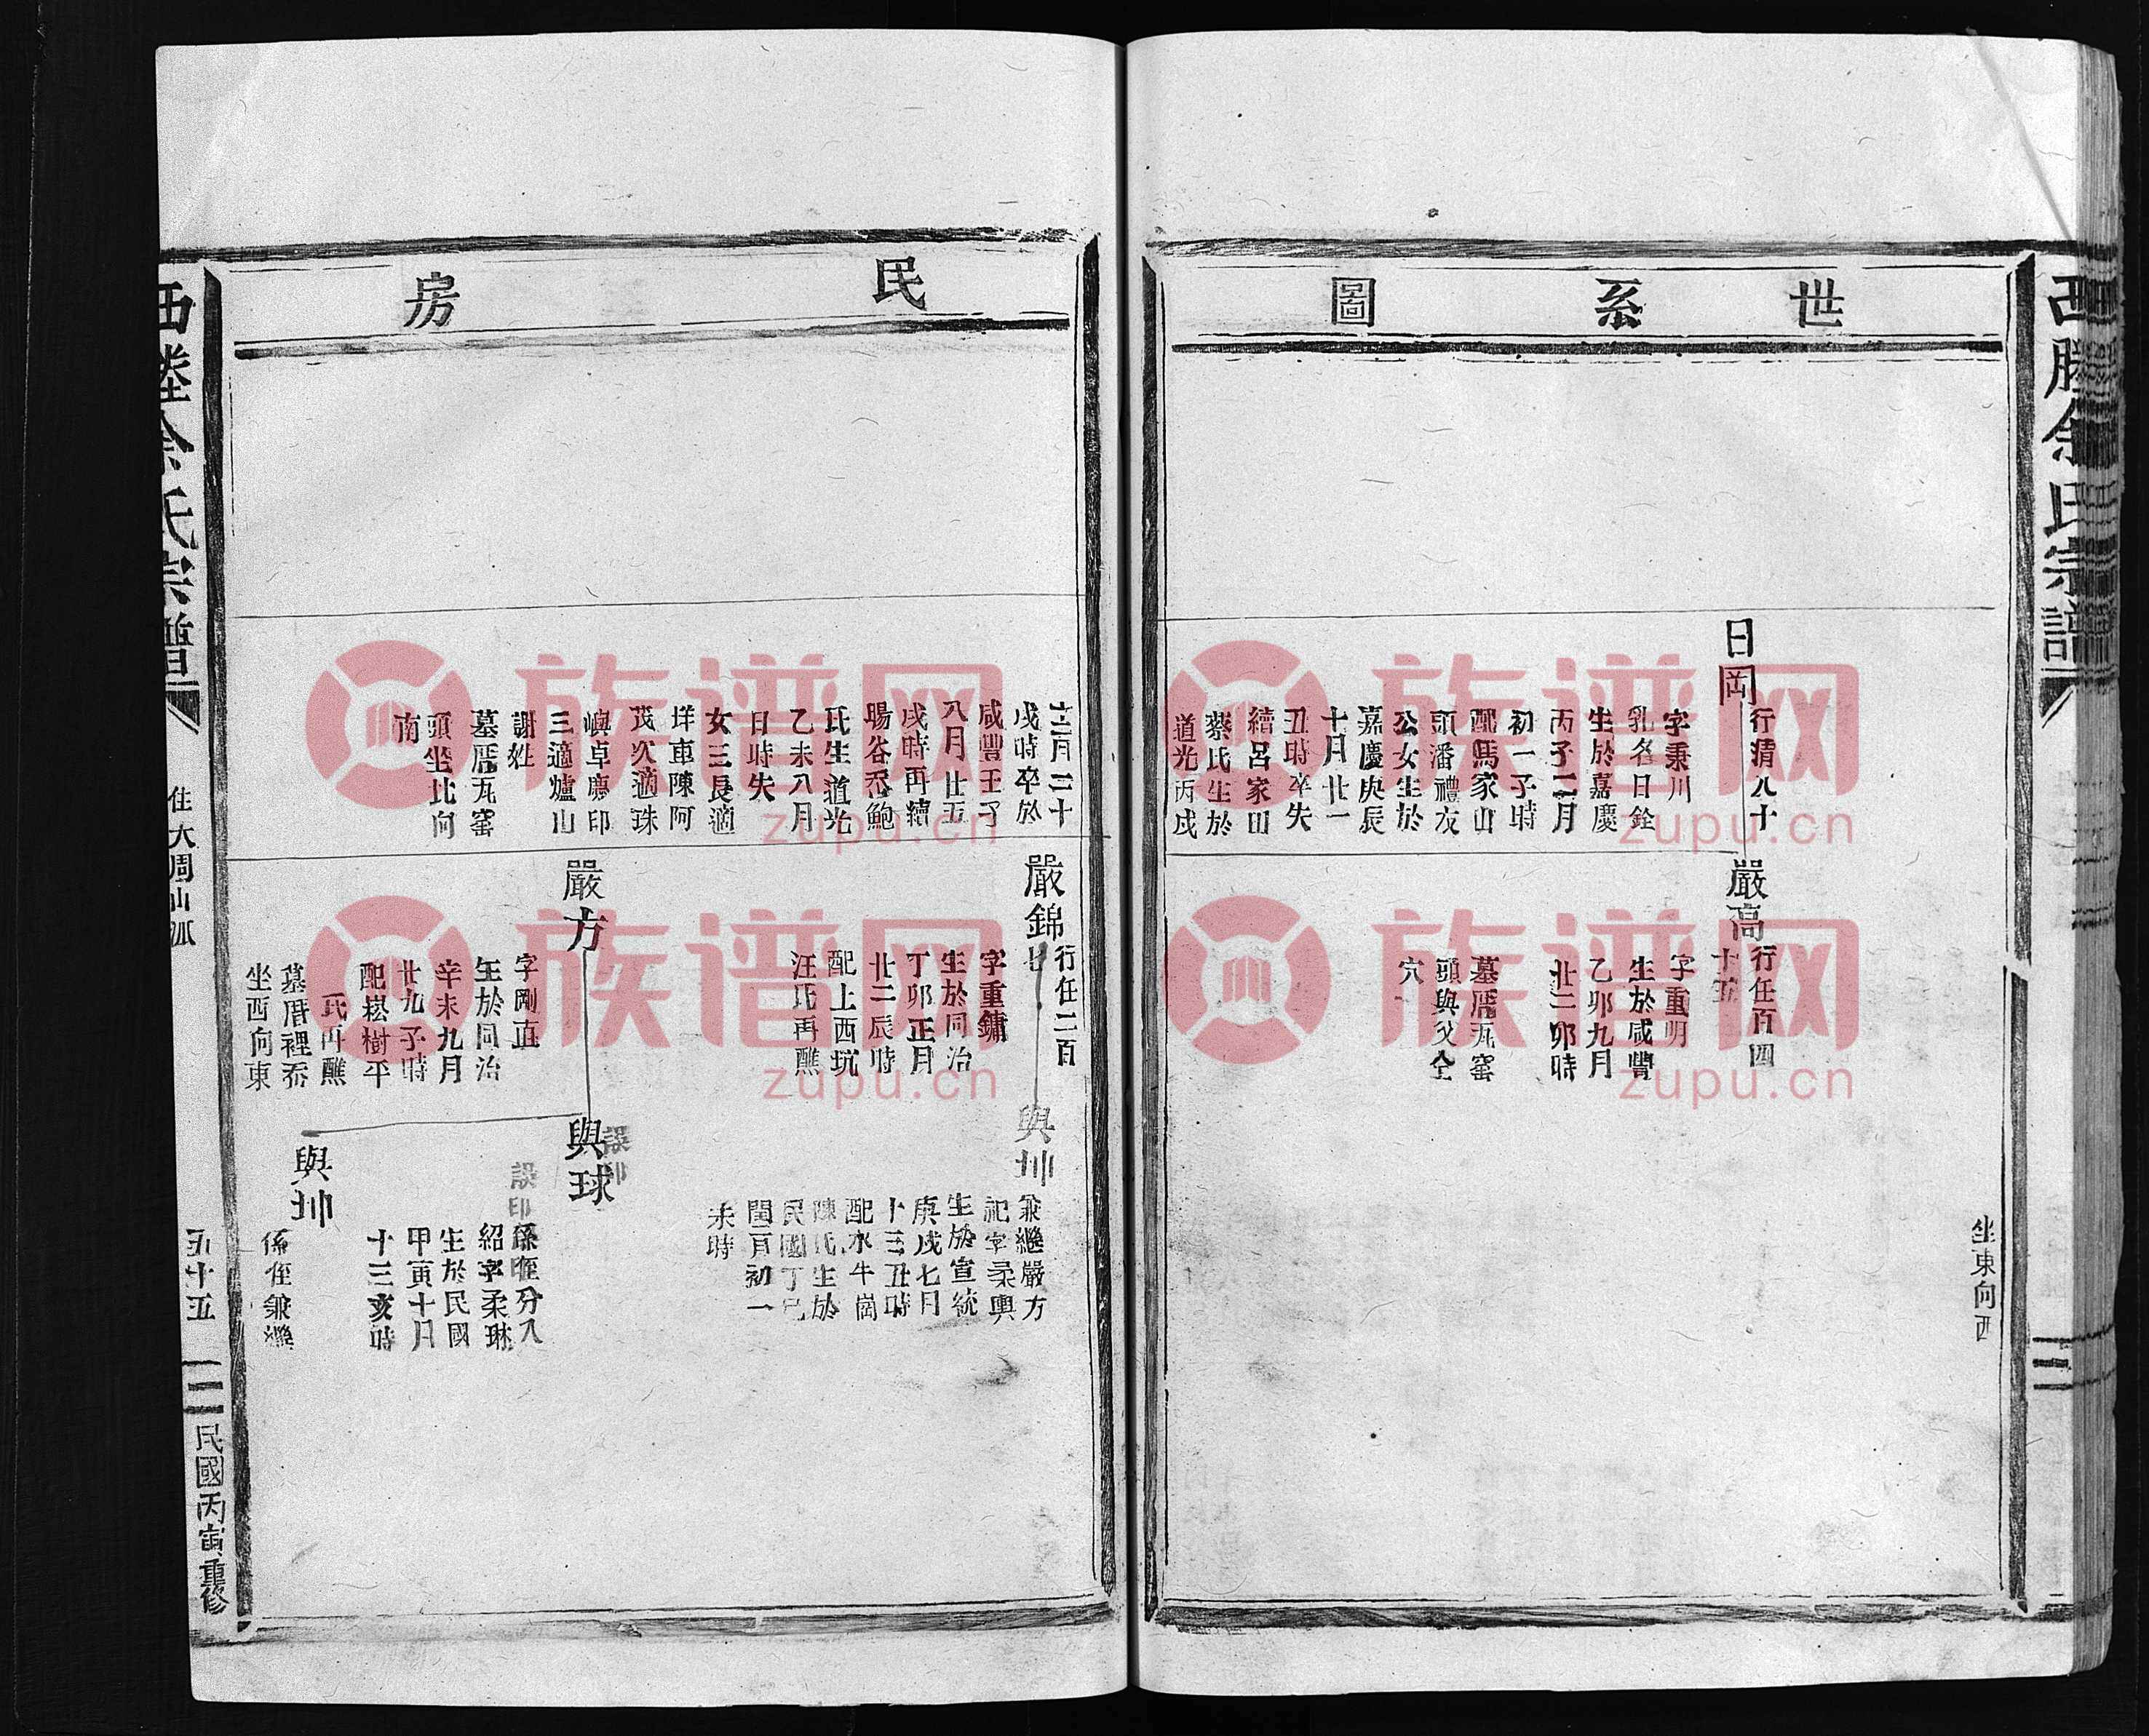 世系圖
日岡
行清八十
字秉川
乳名日銓
生於嘉慶
丙子二月
初一子時
配馬家山
頭潘禮友
公女生於
嘉慶庚辰
十月廿一
丑時卒失
續呂家田
蔡氏生於
道光丙戌
嚴高
行任百四
十五
字重明
生於咸豐
乙卯九月
廿二卯時
墓厝瓦窰
頭與父仝
穴
坐東向西
民房
十二月二十
戌時卒於
咸豐壬子
八月廿五
戌時再續
陽谷岙鮑
氏生道光
乙未八月
日時失
女三長適
垟車陳阿
茂次適珠
嶼卓應印
三適爐山
謝姓
墓厝瓦窰
頭坐北向
南
嚴錦
行任二百
七
字重鏞
生於同治
丁卯正月
廿二辰時
配上西坑
汪氏再醮
嚴方
字剛直
生於同治
辛未九月
廿九子時
配崧樹平
氏再醮
墓厝裡岙
坐西向東
與坤
兼繼嚴方
祀字柔輿
生於宣統
庚戌七月
十三丑時
配水牛崗
陳氏生於
民國丁巳
閏二月初一
未時
與球
誤印
誤印
孫侄分入
紹字柔琳
生於民國
甲寅十月
十三亥時
與坤
係侄兼繼
住大周山
五十五
民國丙寅重修
西塍余氏宗譜
族谱网
zupu.cn
族谱网
zupu.cn
族谱网
zupu.cn
族谱网
zupu.cn